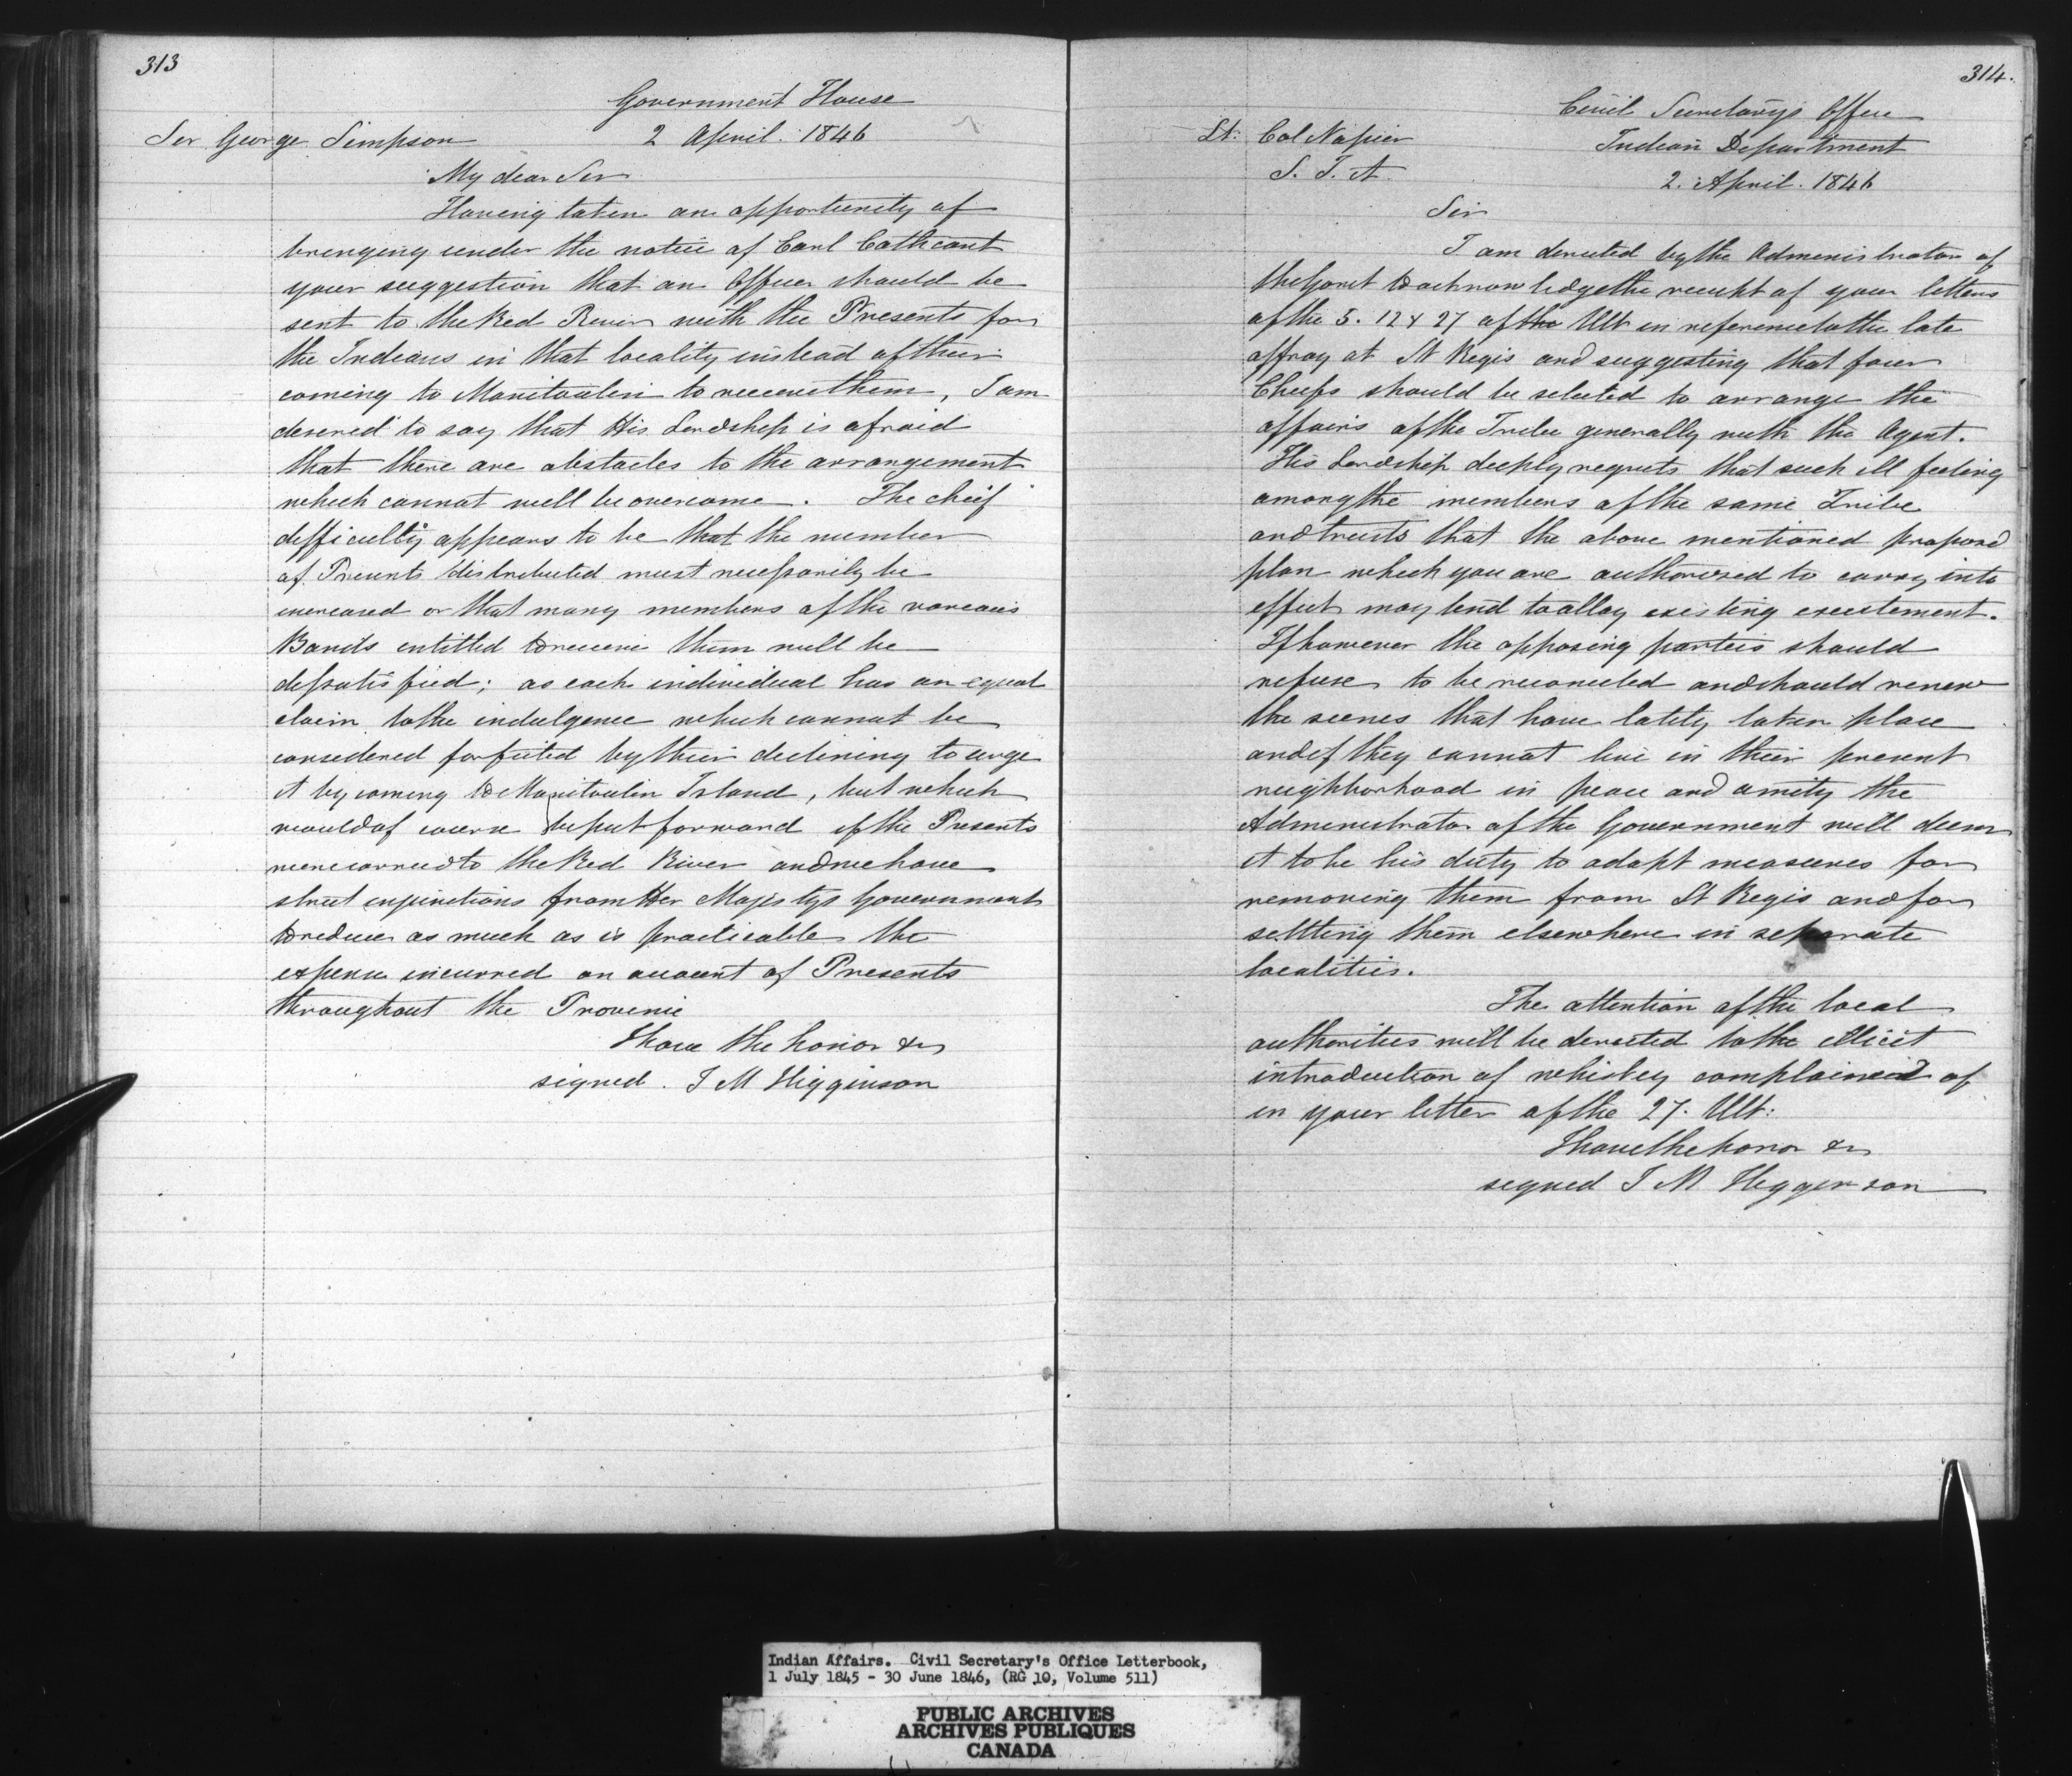 313
Government House
Sir George Simpson 2 April. 1846
My dear Sir
Having taken an opportunity of
bringing under the notice of Earl Cathcart
your suggestion that an Officer should be
sent to the Red River with the Presents for
the Indians in that locality instead of their
coming to Manitoulin to receive them, I am
desired to say that His Lordship is afraid
that there are obstacles to the arrangement
which cannot well be overcome. The cheif
difficulty appears to be that the number
of Presents distributed must necessarily be
increased or that many members of the various
Bands entitled to receive them will be
dissatisfied; as each individual has an equal
claim to the indulgence which cannot be
considered forfeited by their declining to urge
it by coming to Manitoulin Island, but which
would of course be put forward if the Presents
were carried to the Red River and we have
strict injunctions from Her Majestys Government
to reduce as much as is practicable the
expense incurred on account of Presents
throughout the Province
I have the honor &c
signed. J M Higginson
314.
Civil Secretarys Office
Lt: Col Napier Indian Department
S. I. A. 2. April. 1846
Sir
I am directed by the Administrator of
the Govnt to acknowledge the receipt of your letters
of the 5. 12 & 27 of the Ult in reference to the late
affray at St Regis and suggesting that four
Cheifs should be selected to arrange the
affairs of the Tribe generally with the Agent.
His Lordship deeply regrets that such ill feeling
among the members of the same Tribe
and trusts that the above mentioned proposed
plan which you are authorized to carry into
effect may tend to allay existing excitement.
If however the opposing parties should
refuse to be reconciled and should renew
the scenes that have lately taken place
and if they cannot live in their present
neighborhood in peace and amity the
Administrator of the Government will deem
it to be his duty to adopt measures for
removing them from St Regis and for
settling them elsewhere in separate
localities.
The attention of the local
authorities will be directed to the illicit
introduction of whiskey complained of
in your letter of the 27. Ult:
I have the honor &c
signed J M Higginson
Indian Affairs. Civil Secretary's Office Letterbook,
1 July 1845 - 30 June 1846, (RG 10, Volume 511)
PUBLIC ARCHIVES
ARCHIVES PUBLIQUES
CANADA